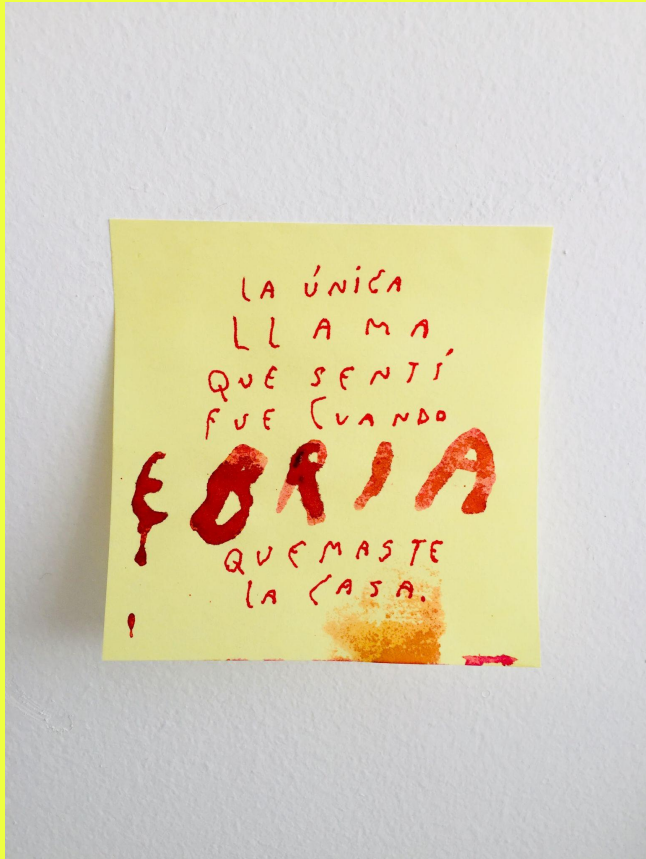 LA ÚNICA
LLAMA
QUE SENTÍ
FUE CUANDO
EBRIA
QUEMASTE
LA CASA.